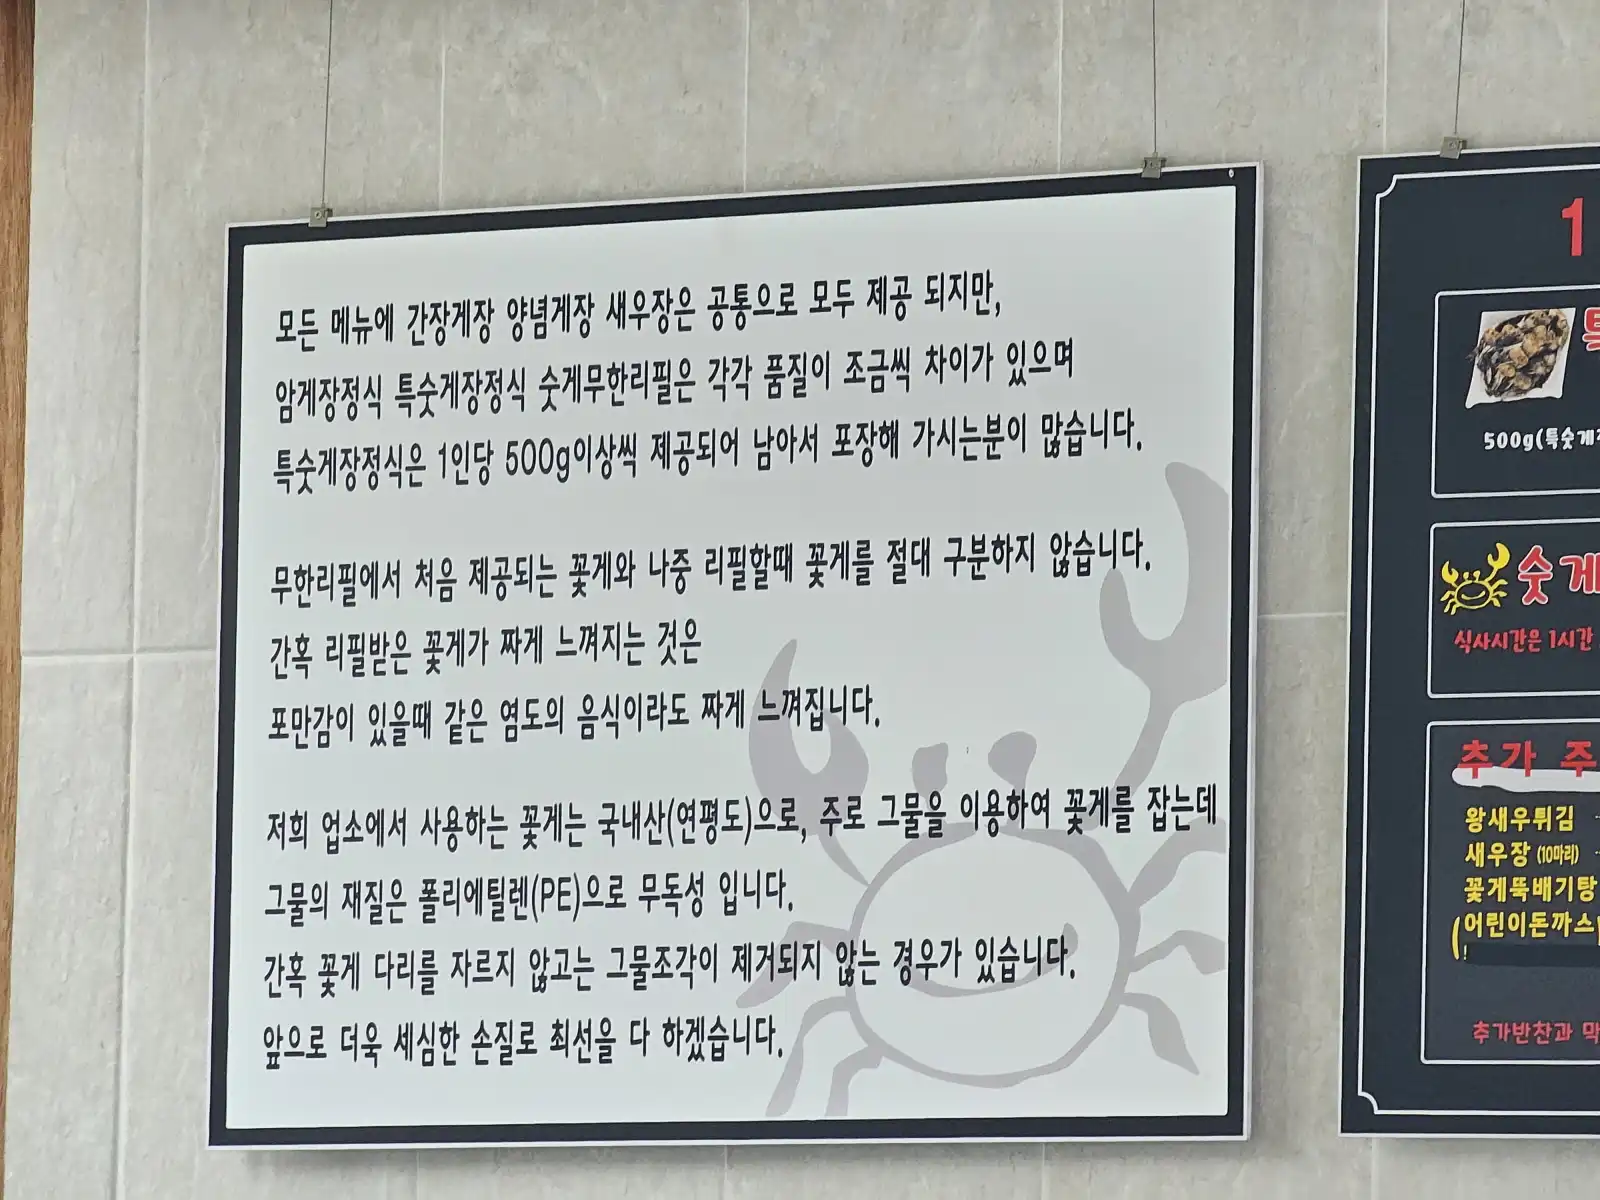 모든 메뉴에 간장게장 양념게장 새우장은 공통으로 모두 제공 되지만,
암게장정식 특숫게장정식 숫게무한리필은 각각 품질이 조금씩 차이가 있으며
특숫게장정식은 1인당 500g이상씩 제공되어 남아서 포장해 가시는분이 많습니다.
무한리필에서 처음 제공되는 꽃게와 나중 리필할때 꽃게를 절대 구분하지 않습니다.
간혹 리필받은 꽃게가 짜게 느껴지는 것은
포만감이 있을때 같은 염도의 음식이라도 짜게 느껴집니다.
저희 업소에서 사용하는 꽃게는 국내산(연평도)으로, 주로 그물을 이용하여 꽃게를 잡는데
그물의 재질은 폴리에틸렌(PE)으로 무독성 입니다.
간혹 꽃게 다리를 자르지 않고는 그물조각이 제거되지 않는 경우가 있습니다.
앞으로 더욱 세심한 손질로 최선을 다 하겠습니다.
1
특
500g(특숫게
숫게
식사시간은 1시간
추가 주
왕새우튀김
새우장 (10마리)
꽃게뚝배기탕
(어린이돈까스
추가반찬과 막